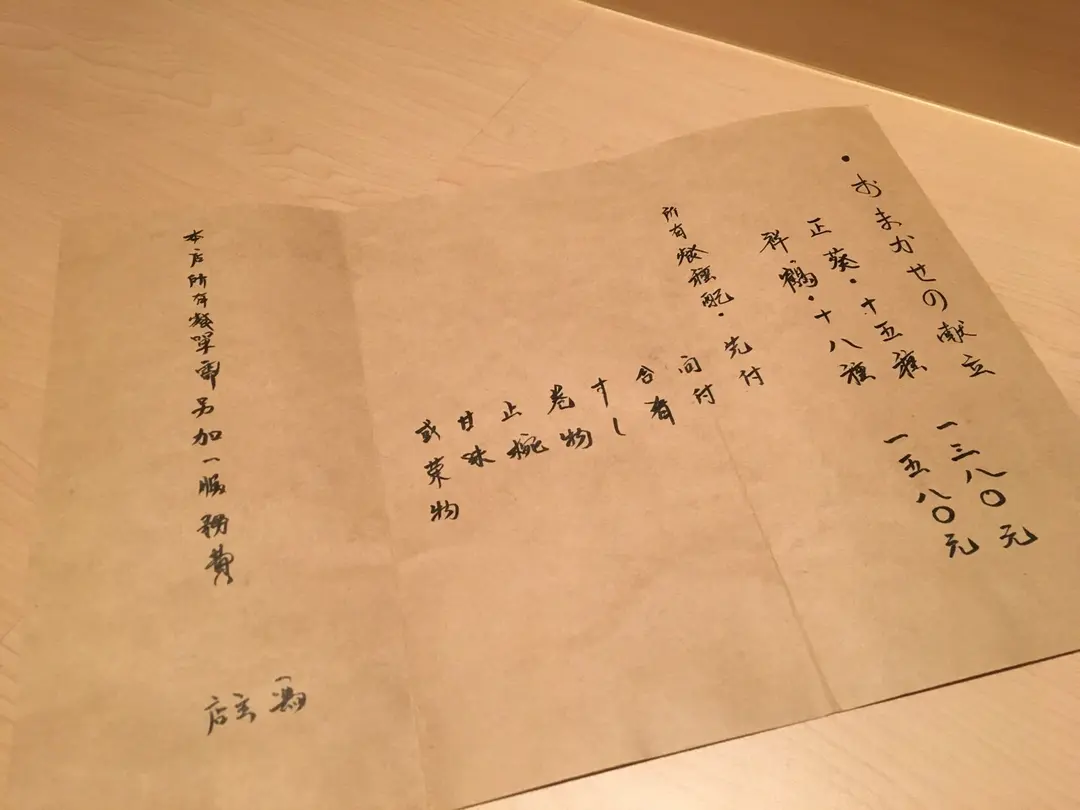 ・おまかせの献立
正葵・十五種 一三八〇元
祥鶴・十八種 一五八〇元
所有餐種配・先付
向付
合肴
すし
卷物
止椀
甘味
或菓物
本店所有餐單需另加一服務費
店主